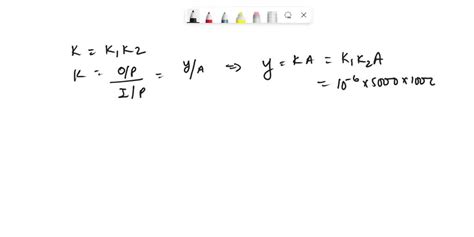 K = K1K2
K = O/P / I/P = y/A ⇒ y = KA = K1K2A
= 10^-6 × 5000 × 1000